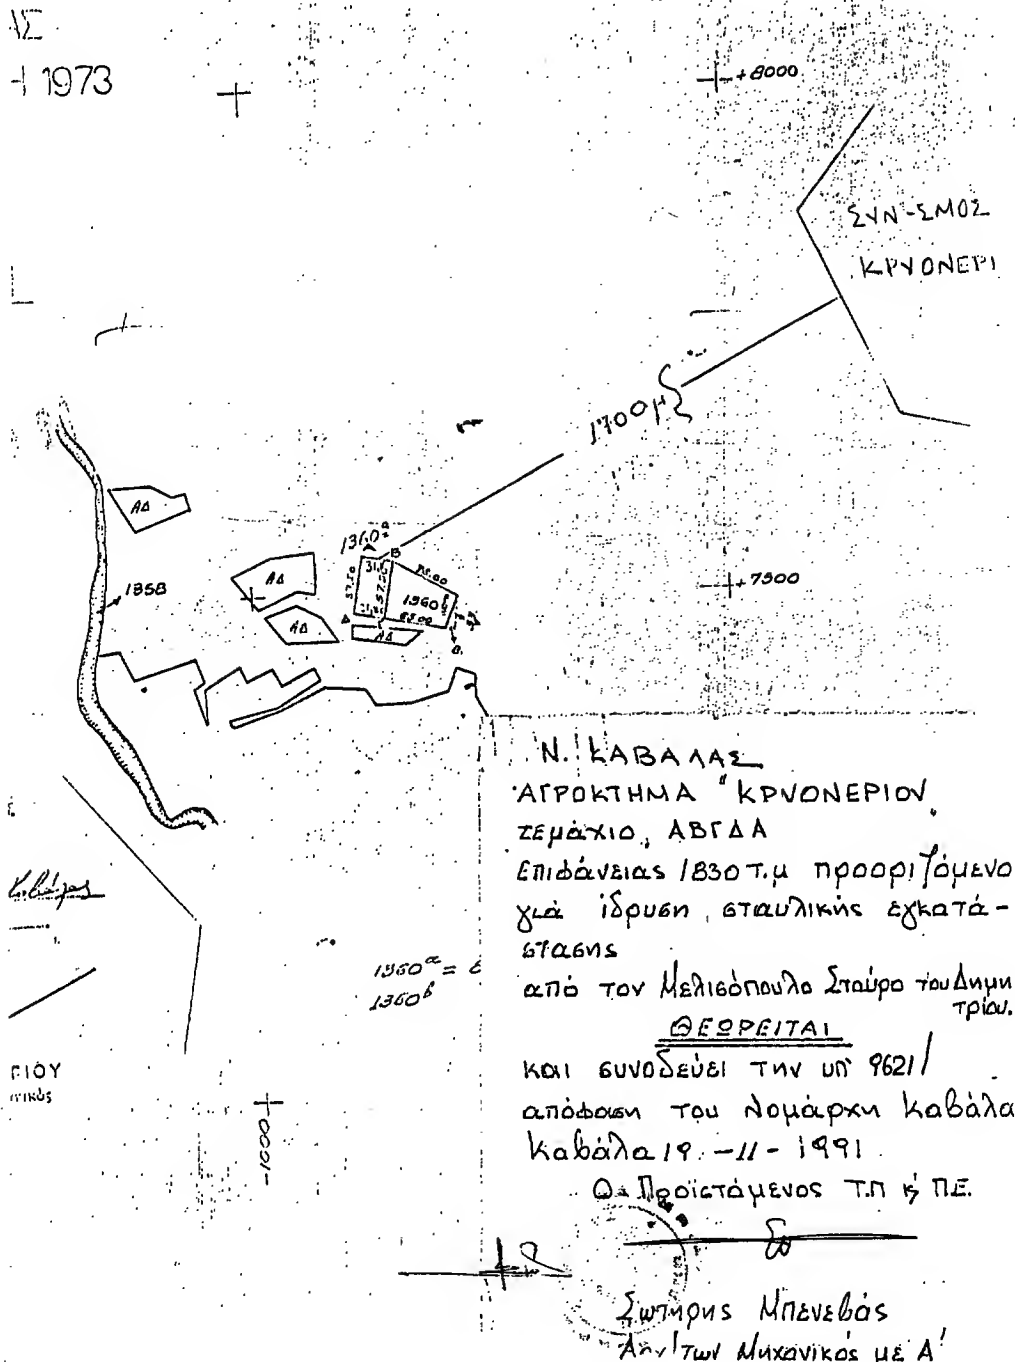 ΑΣ
1973
+8000
ΣΥΝ-ΣΜΟΣ
ΚΡΥΟΝΕΡΙ
1700μ
ΑΔ
1358
ΑΔ
ΑΔ
ΑΔ
1360α
Β
37.50
57.00
75.00
1360β
65.00
+7500
Ν. ΚΑΒΑΛΑΣ
ΑΓΡΟΚΤΗΜΑ "ΚΡΥΟΝΕΡΙΟΥ
τεμάχιο, ΑΒΓΔΑ
Επιφάνειας 1830 τ.μ προοριζόμενο
για ίδρυση σταυλικής εγκατά-
στασης
από τον Μελισόπουλο Σταύρο του Δημη
τρίου.
ΘΕΩΡΕΙΤΑΙ
και συνοδεύει την υπ 9621/
απόφαση του Νομάρχη Καβάλα
Καβάλα 19-11-1991
Ο Προϊστάμενος Τ.Π & Π.Ε.
Σωτήρης Μπενεβάς
των Μηχανικός με Α'
1360α = ε
1360β
-1000+